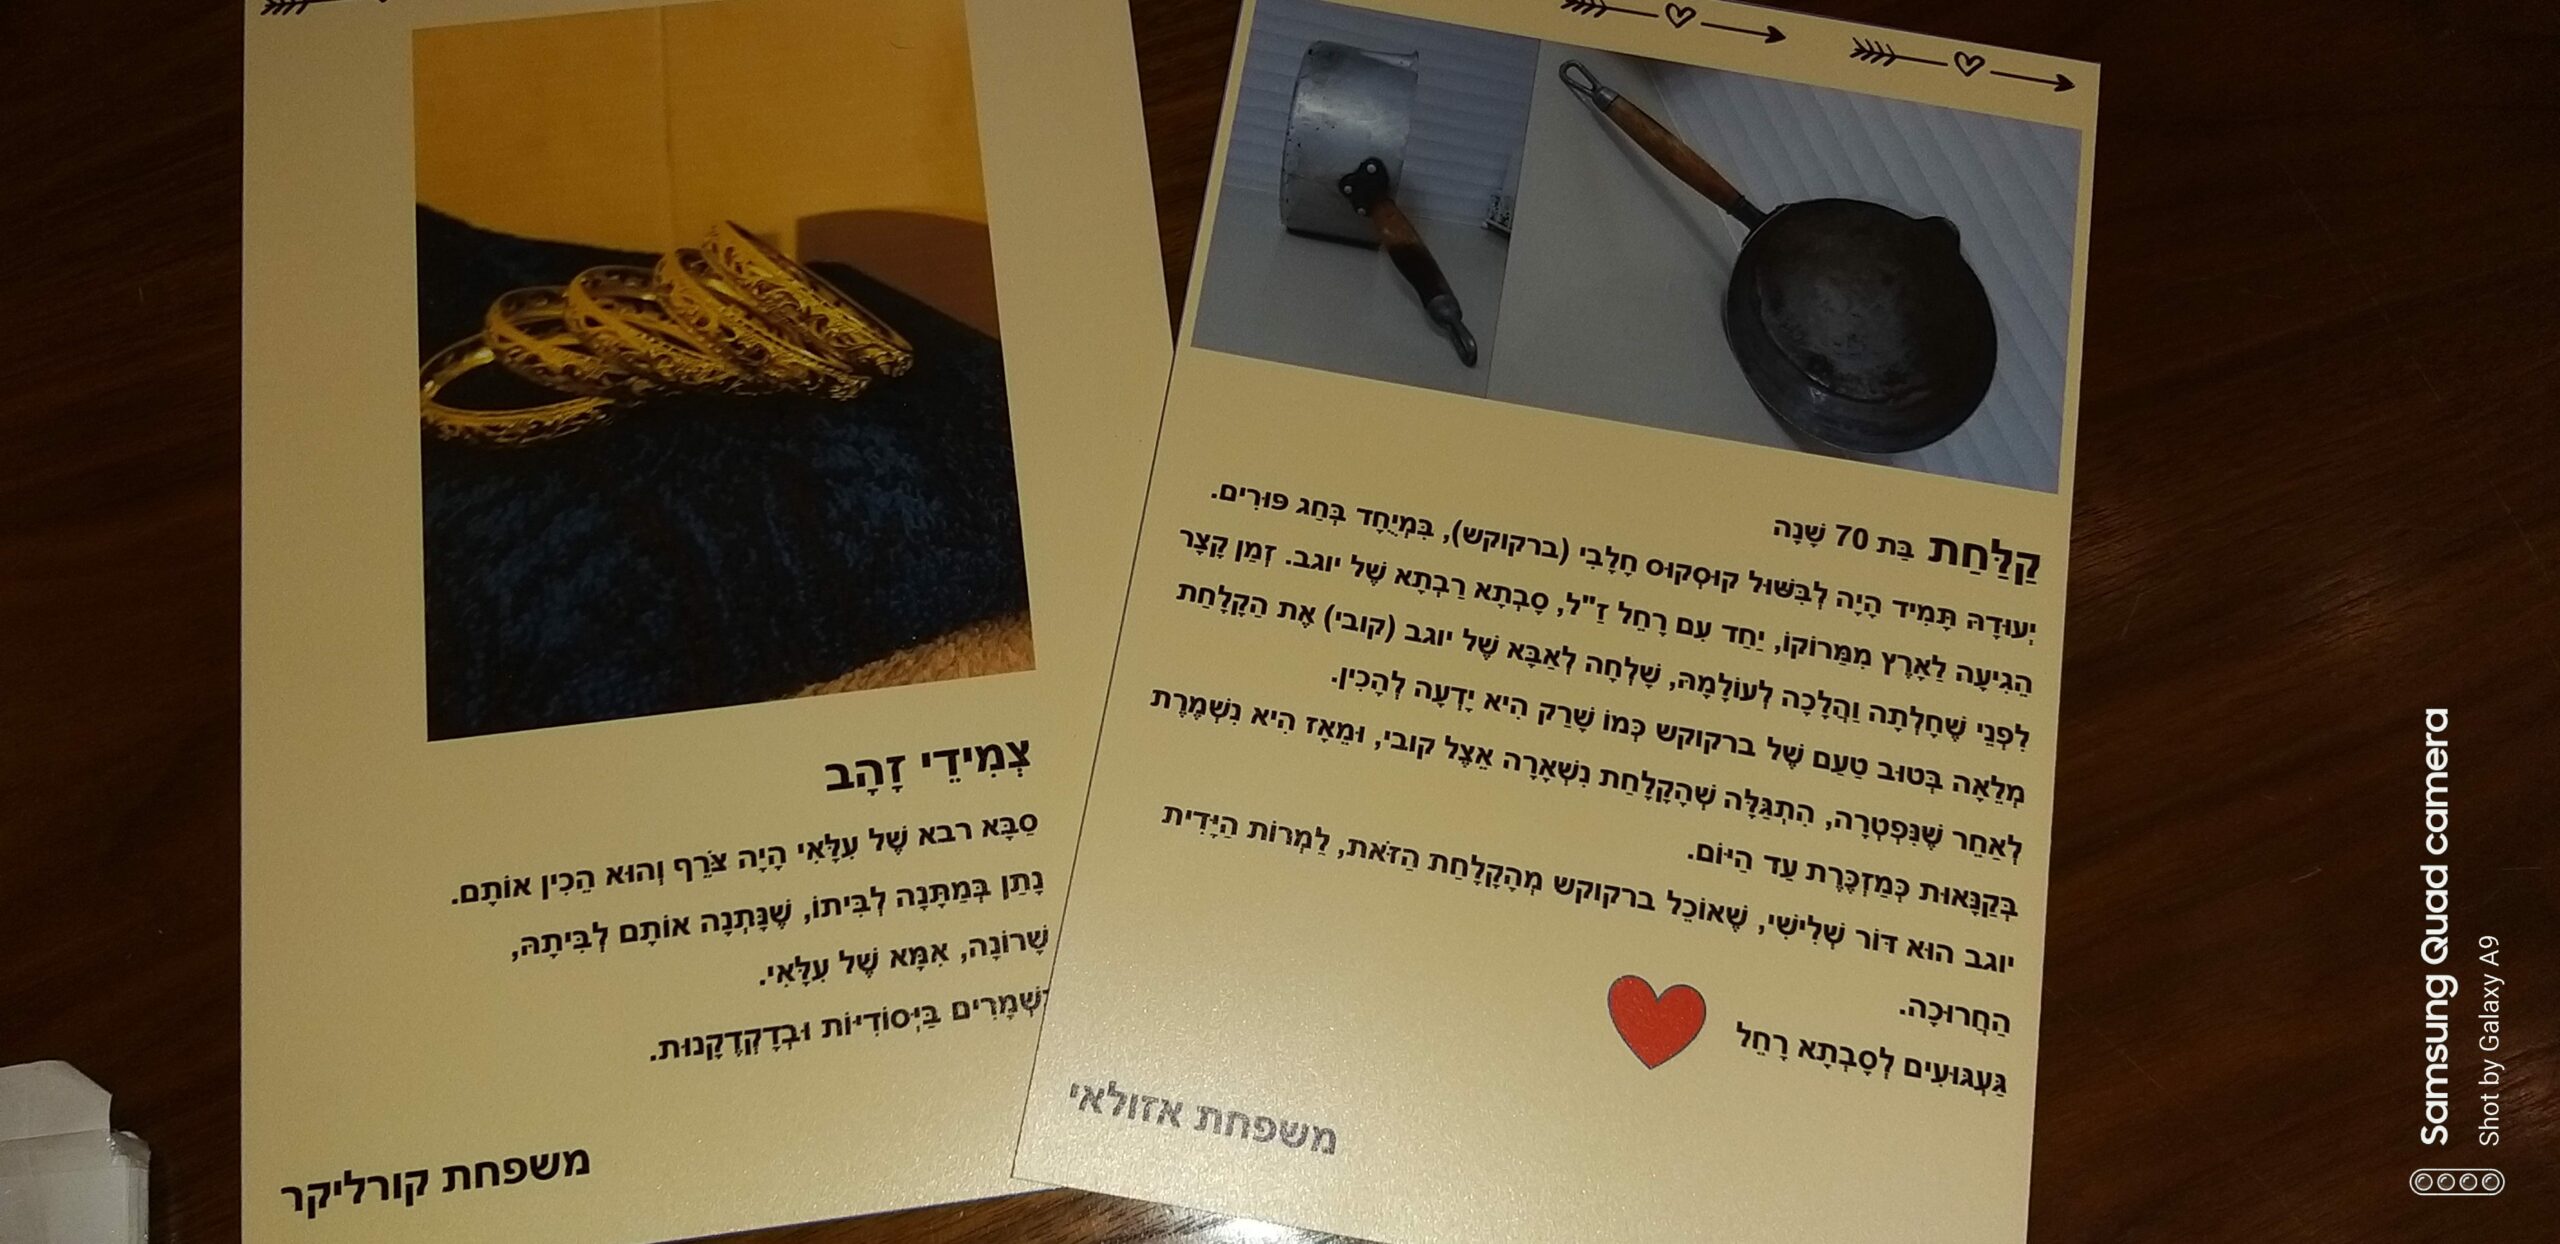 קַלַּחַת בַּת 70 שָׁנָה
יְעוּדָהּ תָּמִיד הָיָה לְבִשּׁוּל קוּסְקוּס חָלָבִי (ברקוקש), בִּמְיֻחָד בְּחַג פּוּרִים.
הִגִּיעָה לָאָרֶץ מִמָּרוֹקוֹ, יַחַד עִם רָחֵל זַ"ל, סָבְתָא רַבְּתָא שֶׁל יוגב. זְמַן קָצָר
לִפְנֵי שֶׁחָלְתָה וַהֲלָכָה לְעוֹלָמָהּ, שָׁלְחָה לְאַבָּא שֶׁל יוגב (קובי) אֶת הַקַּלַּחַת
מְלֵאָה בְּטוּב טַעַם שֶׁל ברקוקש כְּמוֹ שֶׁרַק הִיא יָדְעָה לְהָכִין.
לְאַחַר שֶׁנִּפְטְרָה, הִתְגַּלָּה שֶׁהַקַּלַּחַת נִשְׁאָרָה אֵצֶל קובי, וּמֵאָז הִיא נִשְׁמֶרֶת
בְּקַנָּאוּת כְּמַזְכֶּרֶת עַד הַיּוֹם.
יוגב הוּא דּוֹר שְׁלִישִׁי, שֶׁאוֹכֵל ברקוקש מֵהַקַּלַּחַת הַזֹּאת, לַמְרוֹת הַיָּדִית
הַחֲרוּכָה.
גַּעְגּוּעִים לְסָבְתָא רָחֵל
משפחת אזולאי
צְמִידֵי זָהָב
סַבָּא רבא שֶׁל עִלָּאִי הָיָה צֹרֵף וְהוּא הֵכִין אוֹתָם.
נָתַן בְּמַתָּנָה לְבִיתוֹ, שֶׁנָּתְנָה אוֹתָם לְבִיתָהּ,
שָׁרוֹנָה, אִמָּא שֶׁל עִלָּאִי.
נִשְׁמָרִים בִּיְּסוֹדִיּוּת וּבְדַקְדְּקָנוּת.
משפחת קורליקר
Samsung Quad camera
Shot by Galaxy A9